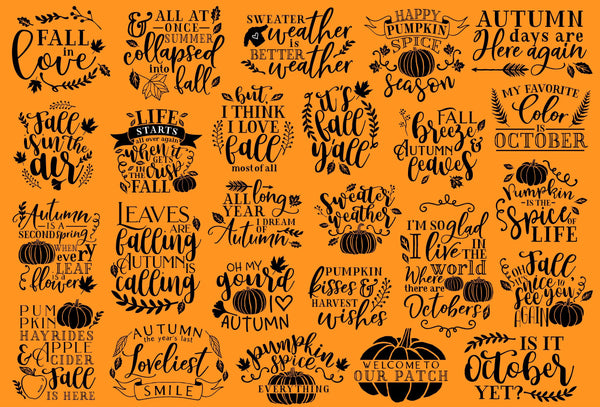 FALL
in
love
& ALL AT
ONCE
SUMMER
collapsed
into
fall
SWEATER
weather
IS
BETTER
weather
HAPPY
PUMPKIN
SPICE
season
AUTUMN
days are
Here again
Fall
is in the
air
LIFE
STARTS
all over again
when it
GETS
IN THE crisp
FALL
but
I THINK
I LOVE
fall
most of all
it's
fall
y'all
FALL
breeze
& AUTUMN
leaves
MY FAVORITE
Color
IS
OCTOBER
Autumn
IS A
SECOND spring
WHEN
every
LEAF
is a
flower
LEAVES
ARE
falling
AUTUMN
IS
calling
All
long
YEAR
I DREAM
OF
Autumn
Sweater
weather
I'M SO glad
I live IN
THE
world
Where
there are
Octobers
Pumpkin
IS THE
Spice OF
LIFE
PUM
PKIN
HAYRIDES
& APPLE
CIDER
Fall
IS HERE
AUTUMN
the year's last
Loveliest
SMILE
OH MY
gourd
I
AUTUMN
PUMPKIN
kisses &
HARVEST
wishes
Fall,
SO
nice to
see you
AGAIN
pumpkin
spice
EVERYTHING
WELCOME TO
OUR PATCH
IS IT
October
YET?